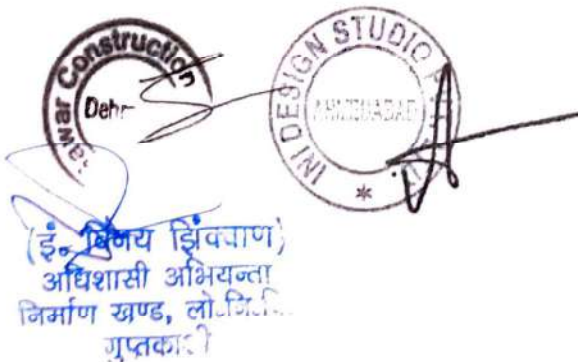 Construction
Dehr
INI DESIGN STUDIO
AHMEDABAD
*
(इं. विनय झिंक्वाण)
अधिशासी अभियन्ता
निर्माण खण्ड, लो.